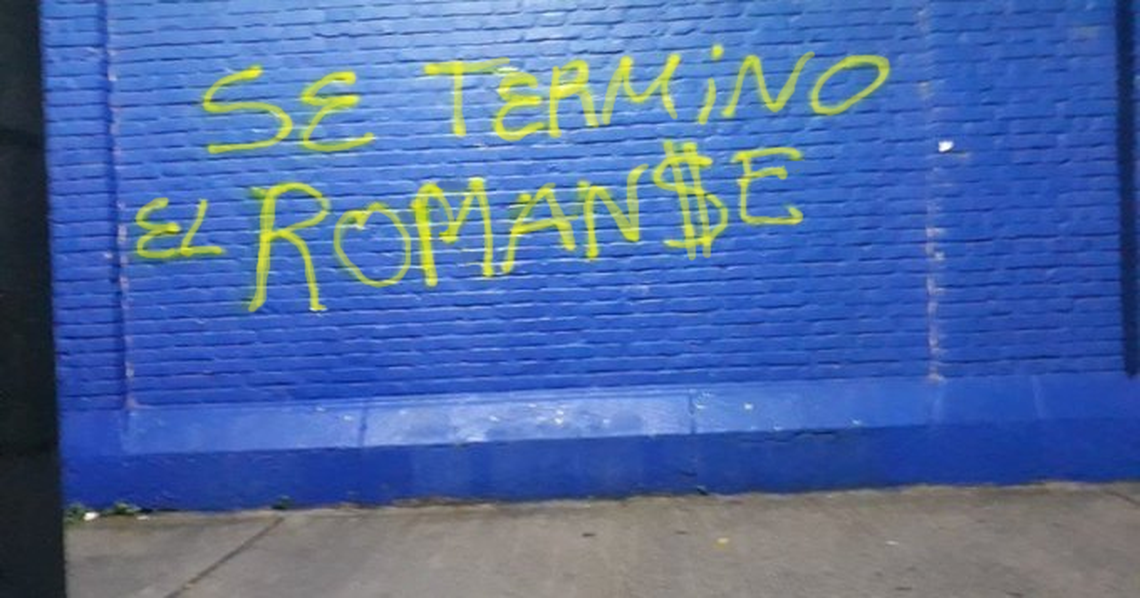 SE TERMiNO
EL ROMAN$E